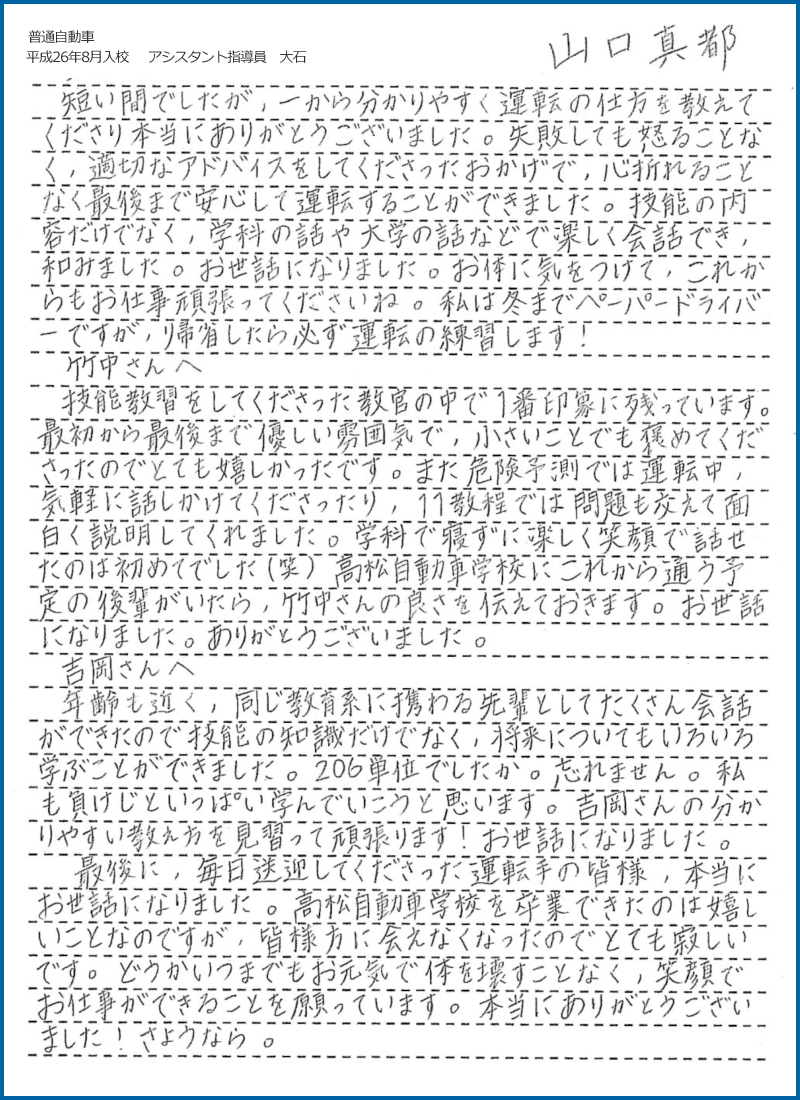 普通自動車
平成26年8月入校　アシスタント指導員　大石
山口真都
短い間でしたが，一から分かりやすく運転の仕方を教えて
くださり本当にありがとうございました。失敗しても怒ることな
く，適切なアドバイスをしてくださったおかげで，心折れること
なく最後まで安心して運転することができました。技能の内
容だけでなく，学科の話や大学の話などで楽しく会話でき，
和みました。お世話になりました。お体に気をつけて，これか
らもお仕事頑張ってくださいね。私は冬までペーパードライバ
ーですが，帰省したら必ず運転の練習します！
竹中さんへ
技能教習をしてくださった教官の中で1番印象に残っています。
最初から最後まで優しい雰囲気で，小さいことでも褒めてくだ
さったのでとても嬉しかったです。また危険予測では運転中，
気軽に話しかけてくださったり，11教程では問題も交えて面
白く説明してくれました。学科で寝ずに楽しく笑顔で話せ
たのは初めてでした（笑）高松自動車学校にこれから通う予
定の後輩がいたら，竹中さんの良さを伝えておきます。お世話
になりました。ありがとうございました。
吉岡さんへ
年齢も近く，同じ教育系に携わる先輩としてたくさん会話
ができたので技能の知識だけでなく，将来についてもいろいろ
学ぶことができました。206単位でしたか。忘れません。私
も負けじといっぱい学んでいこうと思います。吉岡さんの分か
りやすい教え方を見習って頑張ります！お世話になりました。
最後に，毎日送迎してくださった運転手の皆様，本当に
お世話になりました。高松自動車学校を卒業できたのは嬉し
いことなのですが，皆様方に会えなくなったのでとても寂しい
です。どうかいつまでもお元気で体を壊すことなく，笑顔で
お仕事ができることを願っています。本当にありがとうござい
ました！さようなら。